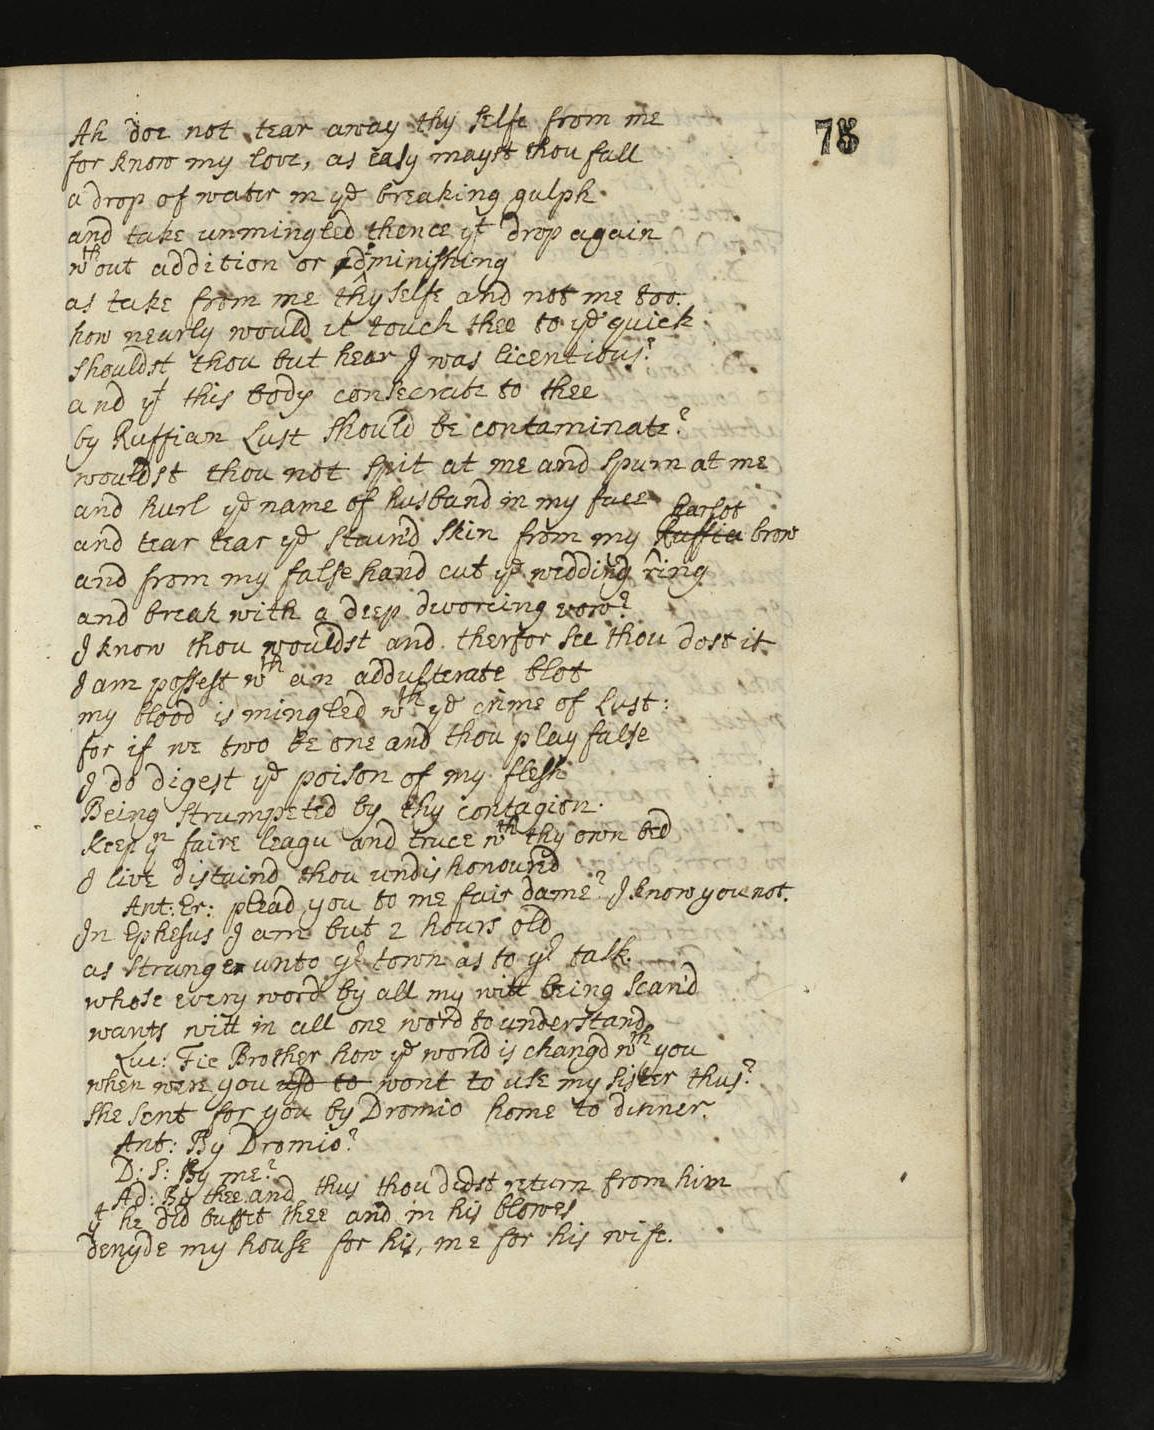 78
Ah doe not tear away thy selfe from me
for know my love, as easy mayst thou fall
a drop of water in ye breaking gulph.
and take unmingled thence yt drop again
wth out addition or diminishing
as take from me thy selfe and not me too.
how nearly would it touch thee to ye quick
shouldst thou but hear I was licentious?
and yt this body consecrate to thee
by Ruffian Lust should be contaminate?
wouldst thou not spit at me and spurn at me
and hurl ye name of husband in my face
and tear tear ye staind skin from my Ruffia harlot brow
and from my false hand cut ye wedding ring
and break with a deep divorcing vow?
I know thou wouldst and therfor see thou dost it
I am possest wth an addulterate blot
my blood is mingled wth ye crime of Lust:
for if we two be one and thou play false
I do digest ye poison of my flesh
Being strumpeted by thy contagion.
keep yn faire leagu and truce wth thy own bed
I live distaind thou undishonoured
Ant: Er: plead you to me fair dame? I know you not.
In Ephesus I am but 2 hours old
as strange unto ye town as to ye talk.
whose every word by all my witt being scand
wants witt in all one word to understand
Luc: Fie Brother how ye world is changd wth you
when were you usd to wont to use my sister thus?
she sent for you by Dromio home to dinner.
Ant: By Dromio?
D: S: By me?
Ad: By thee and thus thou didst return from him
yt he did buffet thee and in his blowes
denyde my house for his, me for his wife.